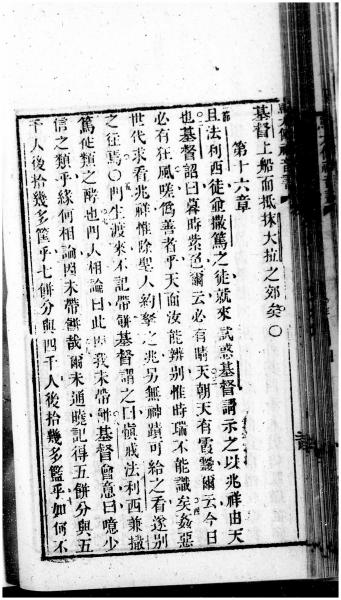 基督上船而抵抹大拉之郊矣〇
第十六章
且法利西徒兼撒篤之徒就來試惑基督請示之以兆祥由天
也基督詔曰暮時紫色爾云必有晴天朝天有霞靉爾云今日
必有狂風嗟偽善者乎天面汝能辨別惟時瑞不能識矣姦惡
世代求看兆祥惟除聖人約拏之兆另無神蹟可給之看遂別
之往焉〇門生渡來不記帶餅基督謂之曰慎戒法利西兼撒
篤徒類之酵也門人相論曰此因我未帶餅基督會意曰噫少
信之類乎緣何相論因未帶餅哉爾未通曉記得五餅分與五
千人後拾幾多筐乎七餅分與四千人後拾幾多籃乎如何不